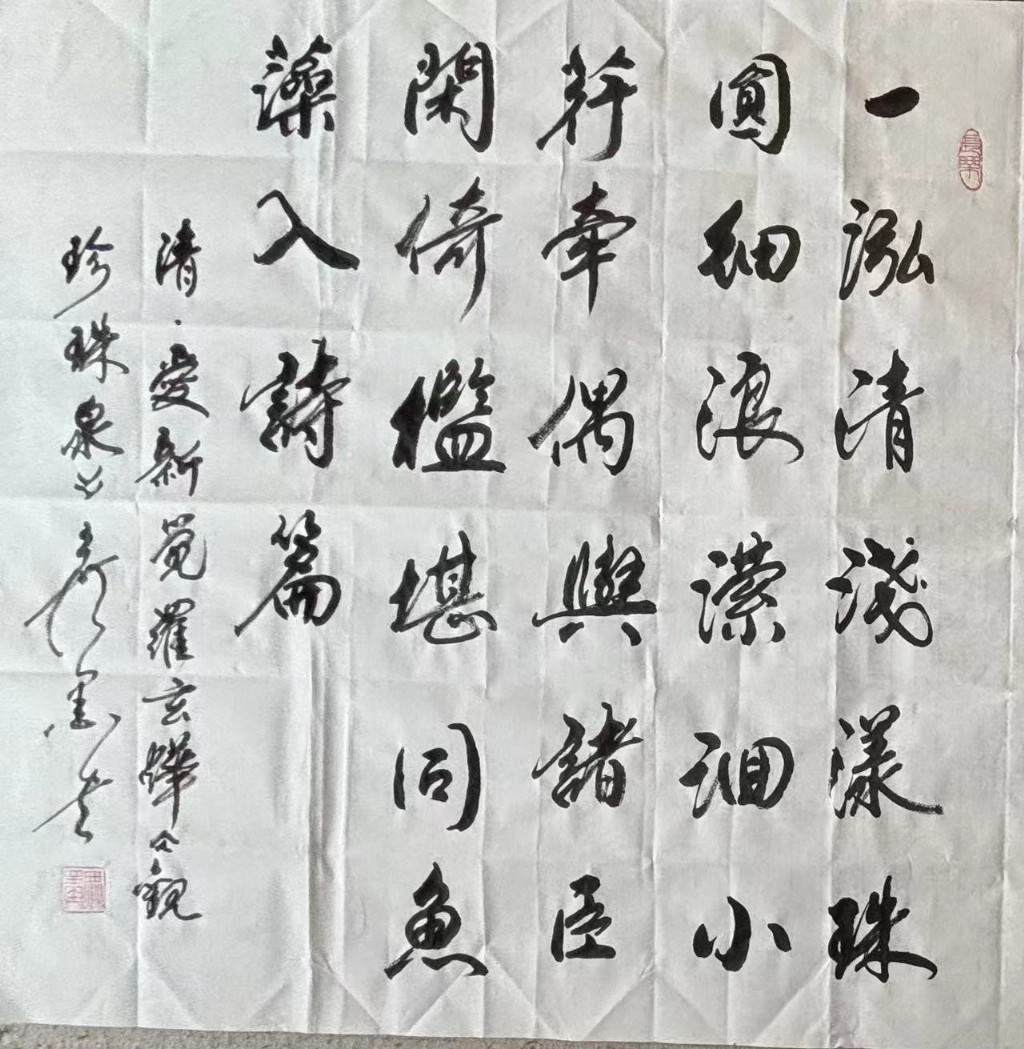 一泓清淺漾珠
圓細浪瀠洄小
荇牽偶與諸臣
閑倚檻堪同魚
藻入詩篇
清·愛新覺羅玄燁《觀
珍珠泉》